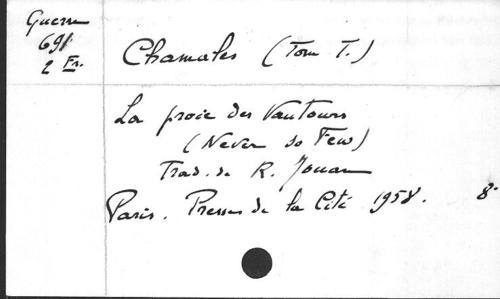 Guerre
691
2 Ex.
Chamales (Tom T.)
La proie des Vautours
(Never so Few)
Trad. de R. Jouan
Paris. Presses de la Cité 1958. 8-